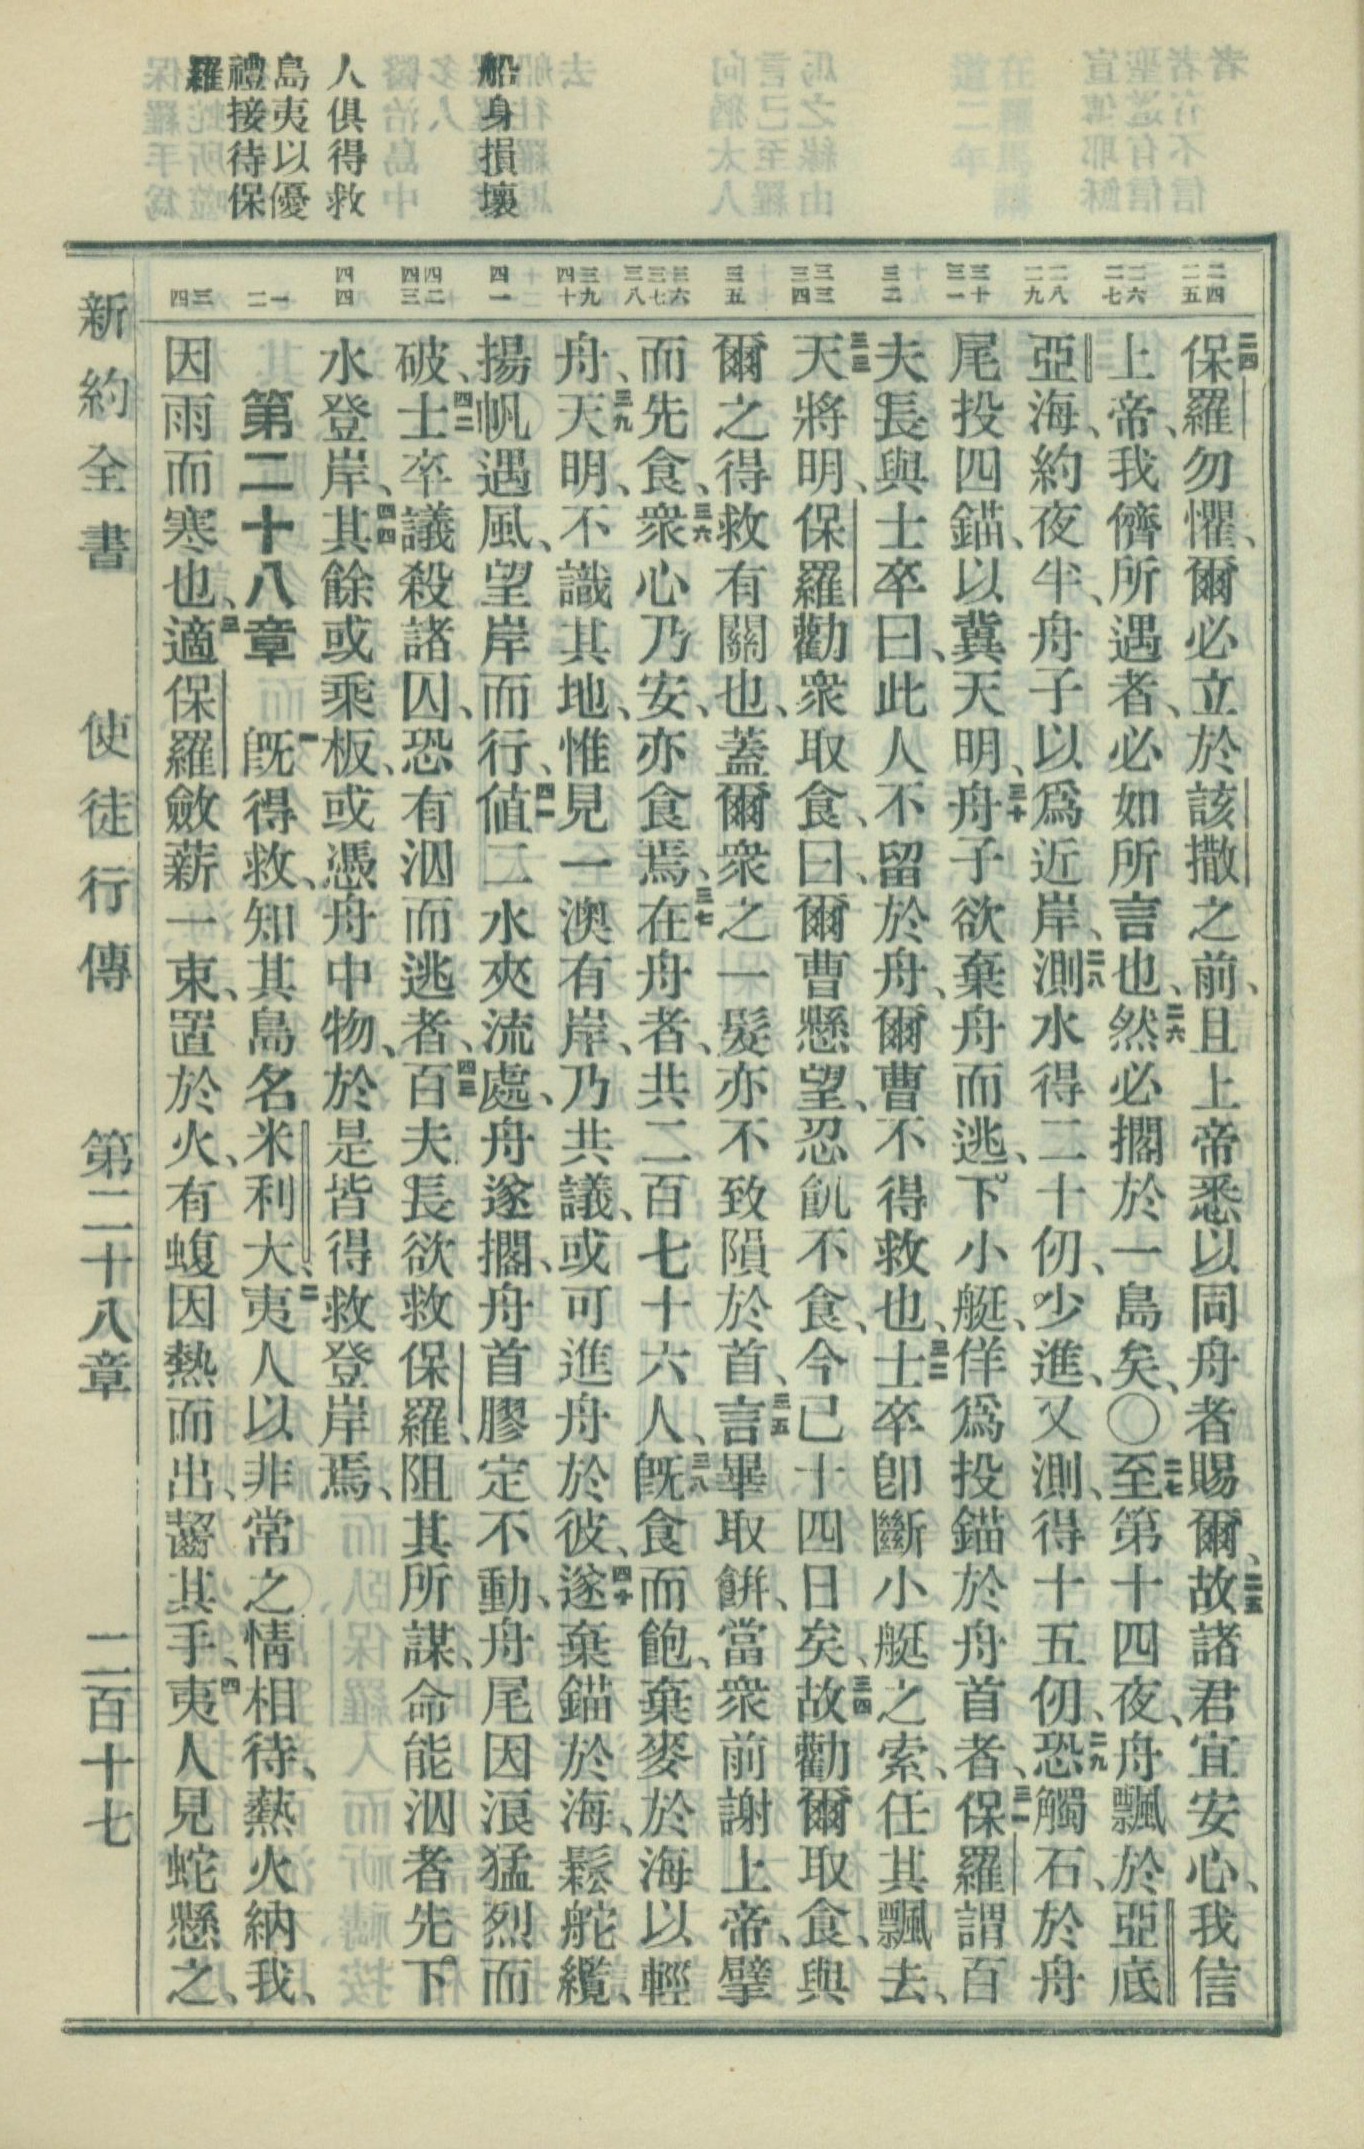 船身損壞
人俱得救
島夷以優
禮接待保
羅
二四
二五
二六
二七
二八
二九
三十
三一
三二
三三
三四
三五
三六
三七
三八
三九
四十
四一
四二
四三
四四
一
二
三
四
二四保羅勿懼、爾必立於該撒之前、且上帝悉以同舟者賜爾、二五故諸君宜安心、我信
上帝、我儕所遇者、必如所言也、二六然必擱於一島矣、〇二七至第十四夜、舟飄於亞底
亞海、約夜半、舟子以爲近岸、二八測水得二十仞、少進、又測、得十五仞、二九恐觸石、於舟
尾投四錨、以冀天明、三十舟子欲棄舟而逃、下小艇、佯爲投錨於舟首者、三一保羅謂百
夫長與士卒曰、此人不留於舟、爾曹不得救也、三二士卒卽斷小艇之索、任其飄去、
三三天將明、保羅勸衆取食、曰、爾曹懸望、忍飢不食、今已十四日矣、三四故勸爾取食、與
爾之得救有關也、蓋爾衆之一髮亦不致隕於首、三五言畢取餅、當衆前謝上帝、擘
而先食、三六衆心乃安、亦食焉、三七在舟者、共二百七十六人、三八旣食而飽、棄麥於海以輕
舟、三九天明、不識其地、惟見一澳有岸、乃共議、或可進舟於彼、四十遂棄錨於海、鬆舵纜、
揚帆遇風、望岸而行、四一値二水夾流處、舟遂擱、舟首膠定不動、舟尾因浪猛烈而
破、四二士卒議殺諸囚、恐有泅而逃者、四三百夫長欲救保羅、阻其所謀、命能泅者先下
水登岸、四四其餘或乘板、或憑舟中物、於是皆得救登岸焉、
第二十八章 一旣得救、知其島名米利大、二夷人以非常之情相待、熱火納我、
因雨而寒也、三適保羅斂薪一束、置於火、有蝮因熱而出、齧其手、四夷人見蛇懸之、
新約全書 使徒行傳 第二十八章 二百十七